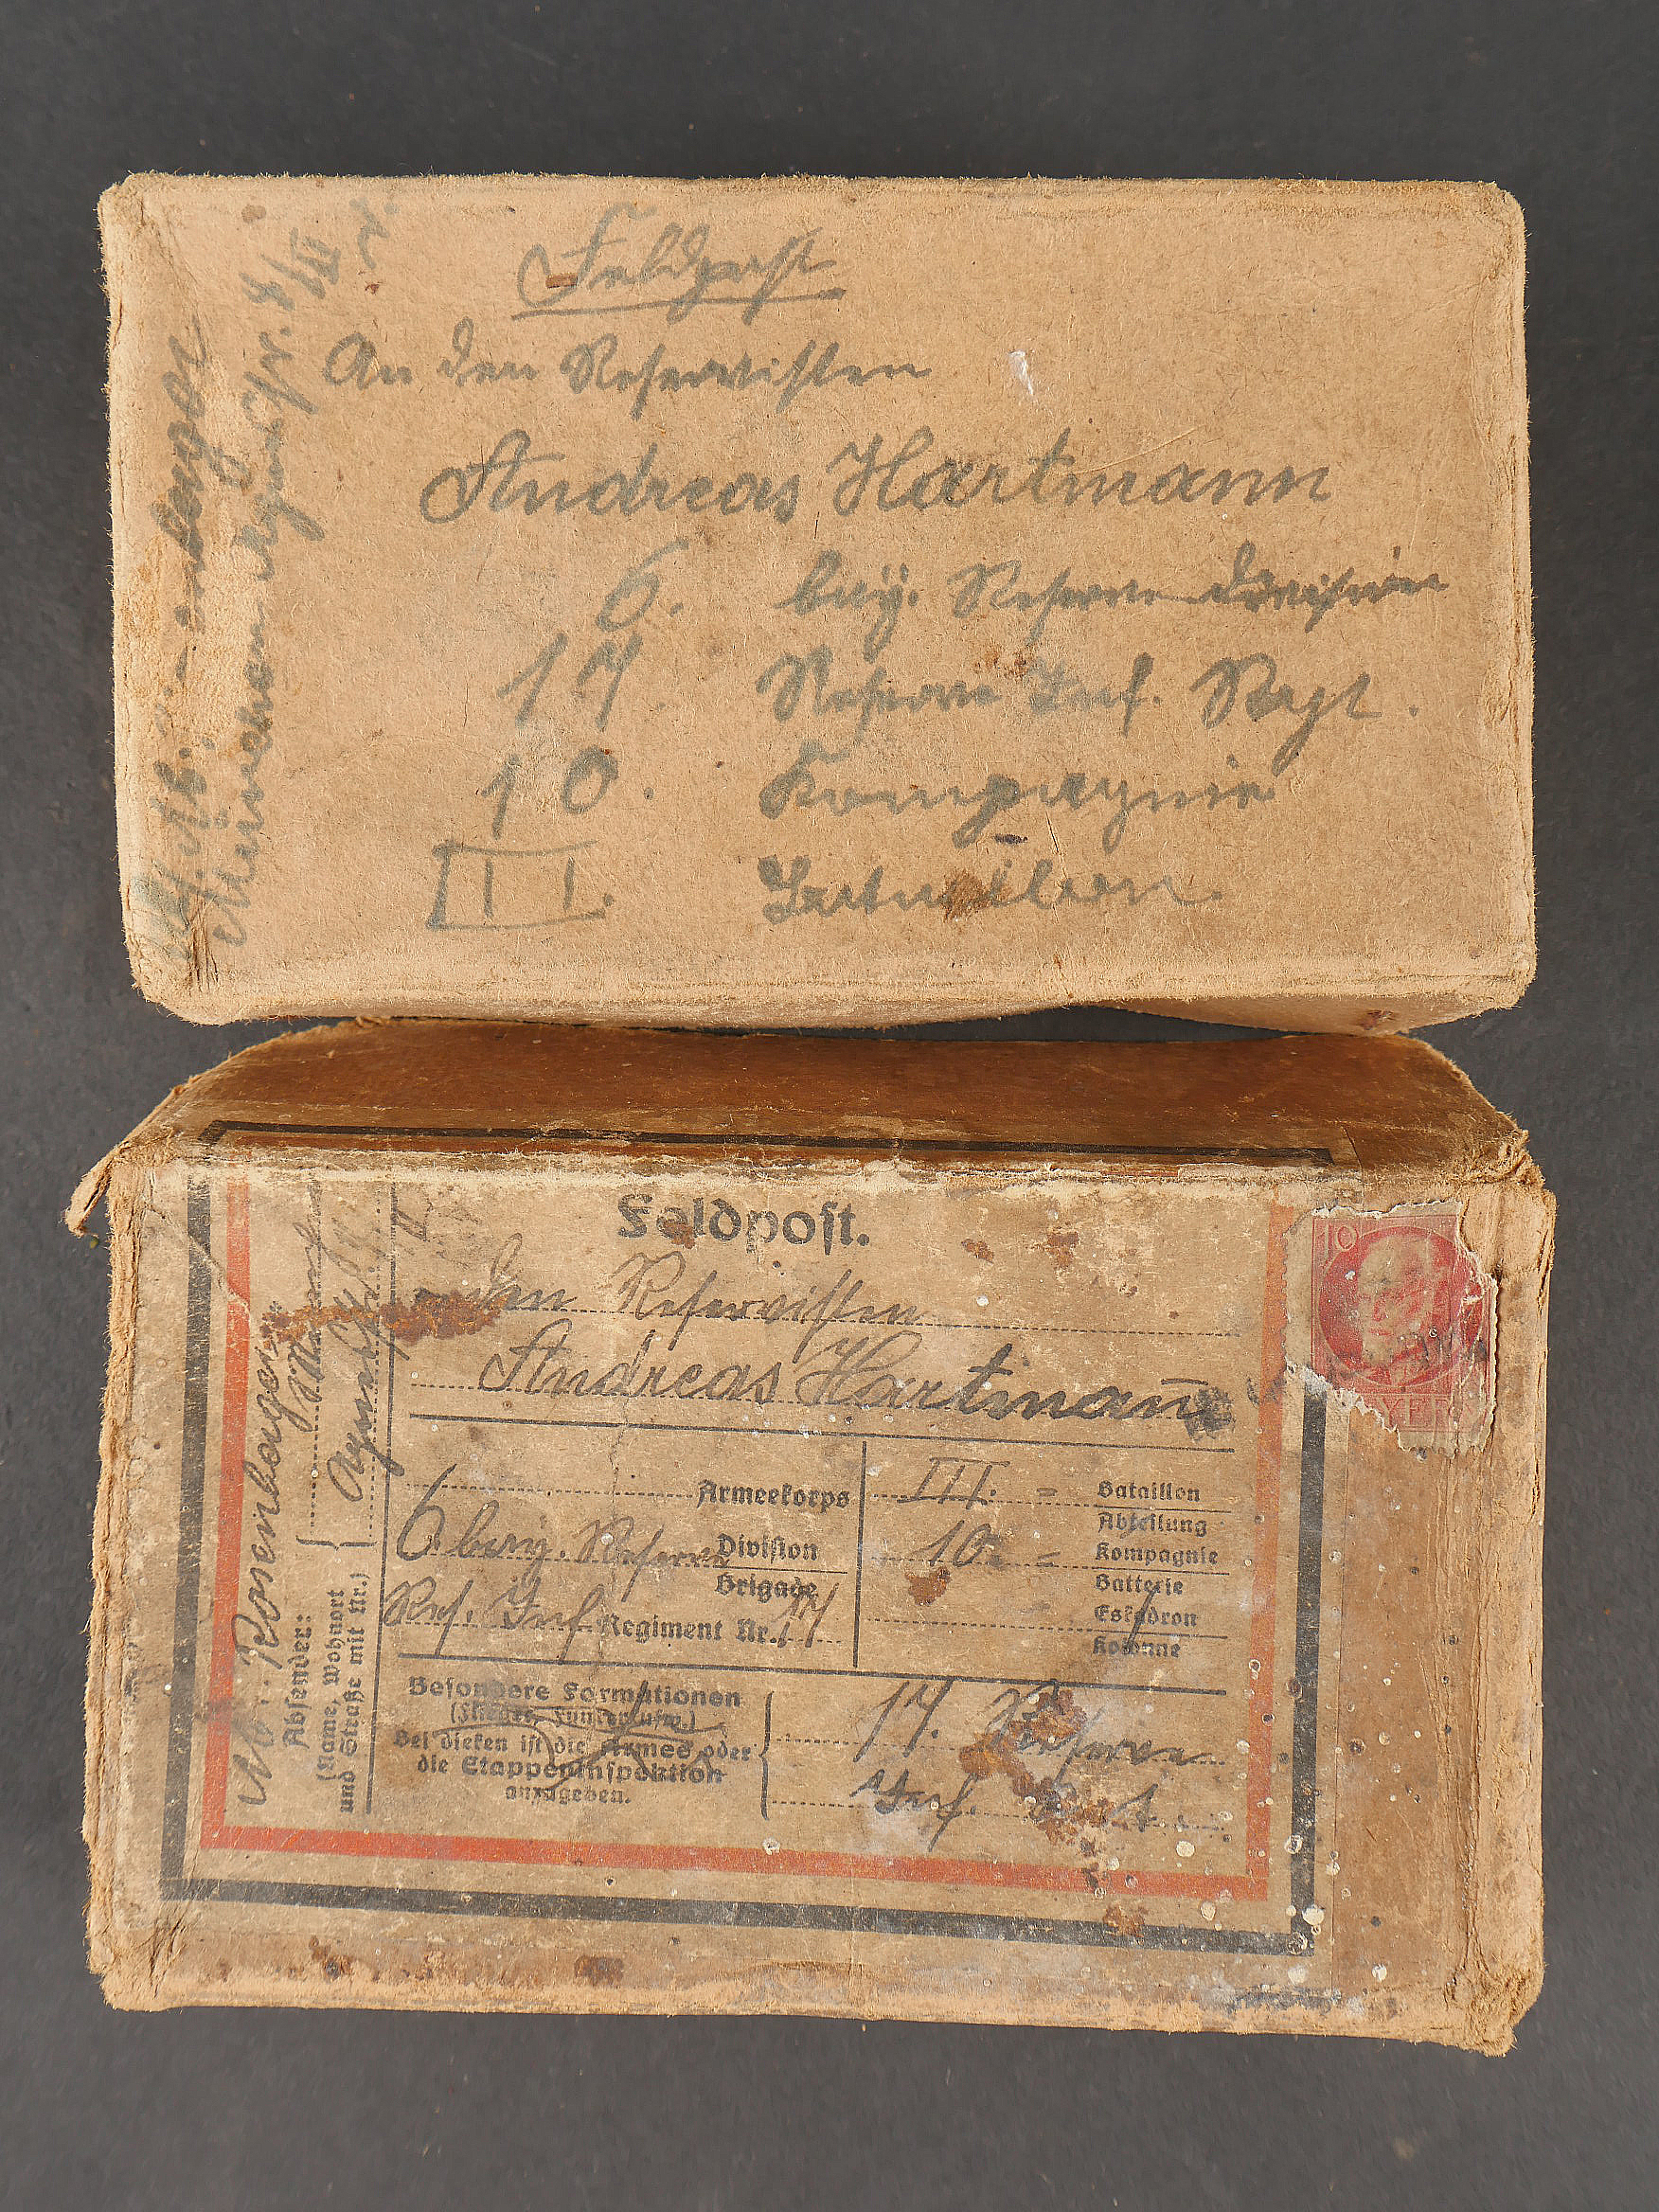 Feldpost
An den Reservisten
Andreas Hartmann
6. bay. Reserve division
17 Reserve Inf. Regt.
10. Kompagnie
III. Bataillon.
München
Feldpost.
den Reservisten
Andreas Hartmann
Armeekorps
6. bay. Reserve Division
Brigade
Res. Inf Regiment Nr. 17
III. = Bataillon
Abteilung
10. = Kompagnie
Batterie
Eskadron
Kolonne
Besondere Formationen
(Flieger, Funker usw.)
Bei diesen ist die Armee oder
die Etappeninspektion
anzugeben.
17. Reserve
Inf. Regt.
M. Rosenberger
Absender:
(Name, Wohnort
und Straße mit Nr.)
10